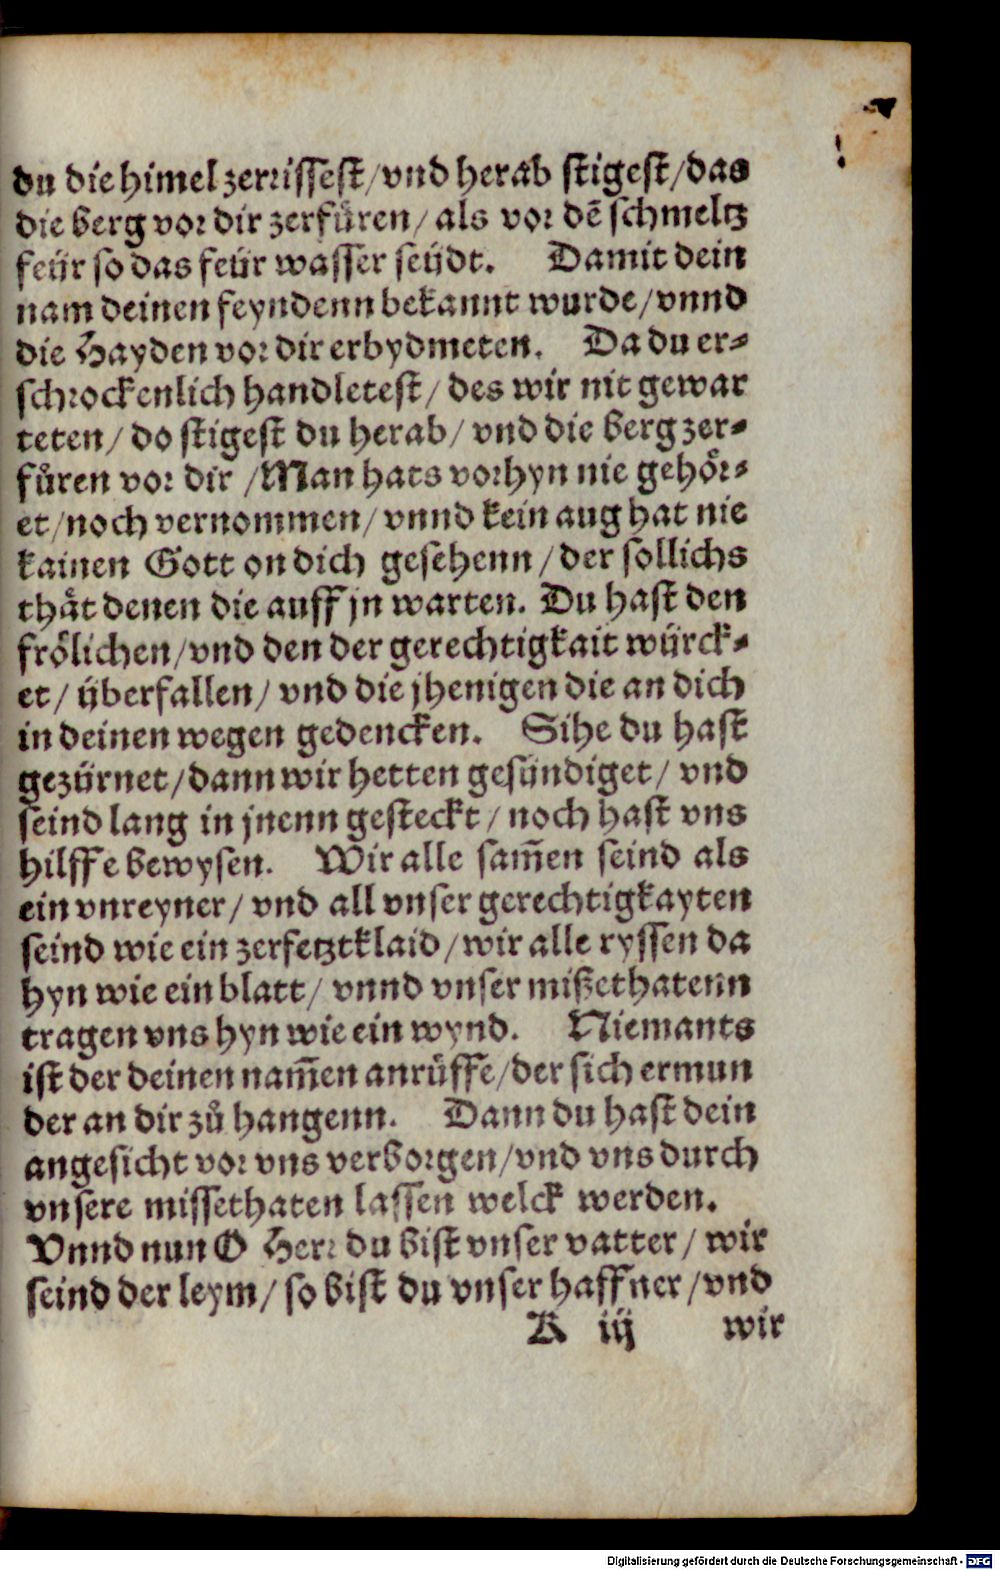 du die himel zerrissest/vnd herab stigest/das
die berg vor dir zerfuͤren/ als vor dẽ schmeltz
feür so das feür wasser seüdt. Damit dein
nam deinen feyndenn bekannt wurde/vnnd
die Hayden vor dir erbydmeten. Da du er-
schrockenlich handletest/ des wir nit gewar
teten/ do stigest du herab/ vnd die berg zer-
fuͤren vor dir /Man hats vorhyn nie gehoͤr-
et/noch vernommen/ vnnd kein aug hat nie
kainen Gott on dich gesehenn/der sollichs
thaͤt denen die auff jn warten. Du hast den
froͤlichen/vnd den der gerechtigkait würck-
et/ überfallen/ vnd die jhenigen die an dich
in deinen wegen gedencken. Sihe du hast
gezürnet/dann wir hetten gesündiget/ vnd
seind lang in jnenn gesteckt/ noch hast vns
hilffe bewysen. Wir alle sam̃en seind als
ein vnreyner/ vnd all vnser gerechtigkayten
seind wie ein zerfetztklaid/wir alle ryssen da
hyn wie ein blatt/ vnnd vnser mißethatenn
tragen vns hyn wie ein wynd. Niemants
ist der deinen nam̃en anruͤffe/der sich ermun
der an dir zuͦ hangenn. Dann du hast dein
angesicht vor vns verborgen/vnd vns durch
vnsere missethaten lassen welck werden.
Vnnd nun O Herr du bist vnser vatter/ wir
seind der leym/ so bist du vnser haffner/vnd
K iij wir
Digitalisierung gefördert durch die Deutsche Forschungsgemeinschaft - DFG